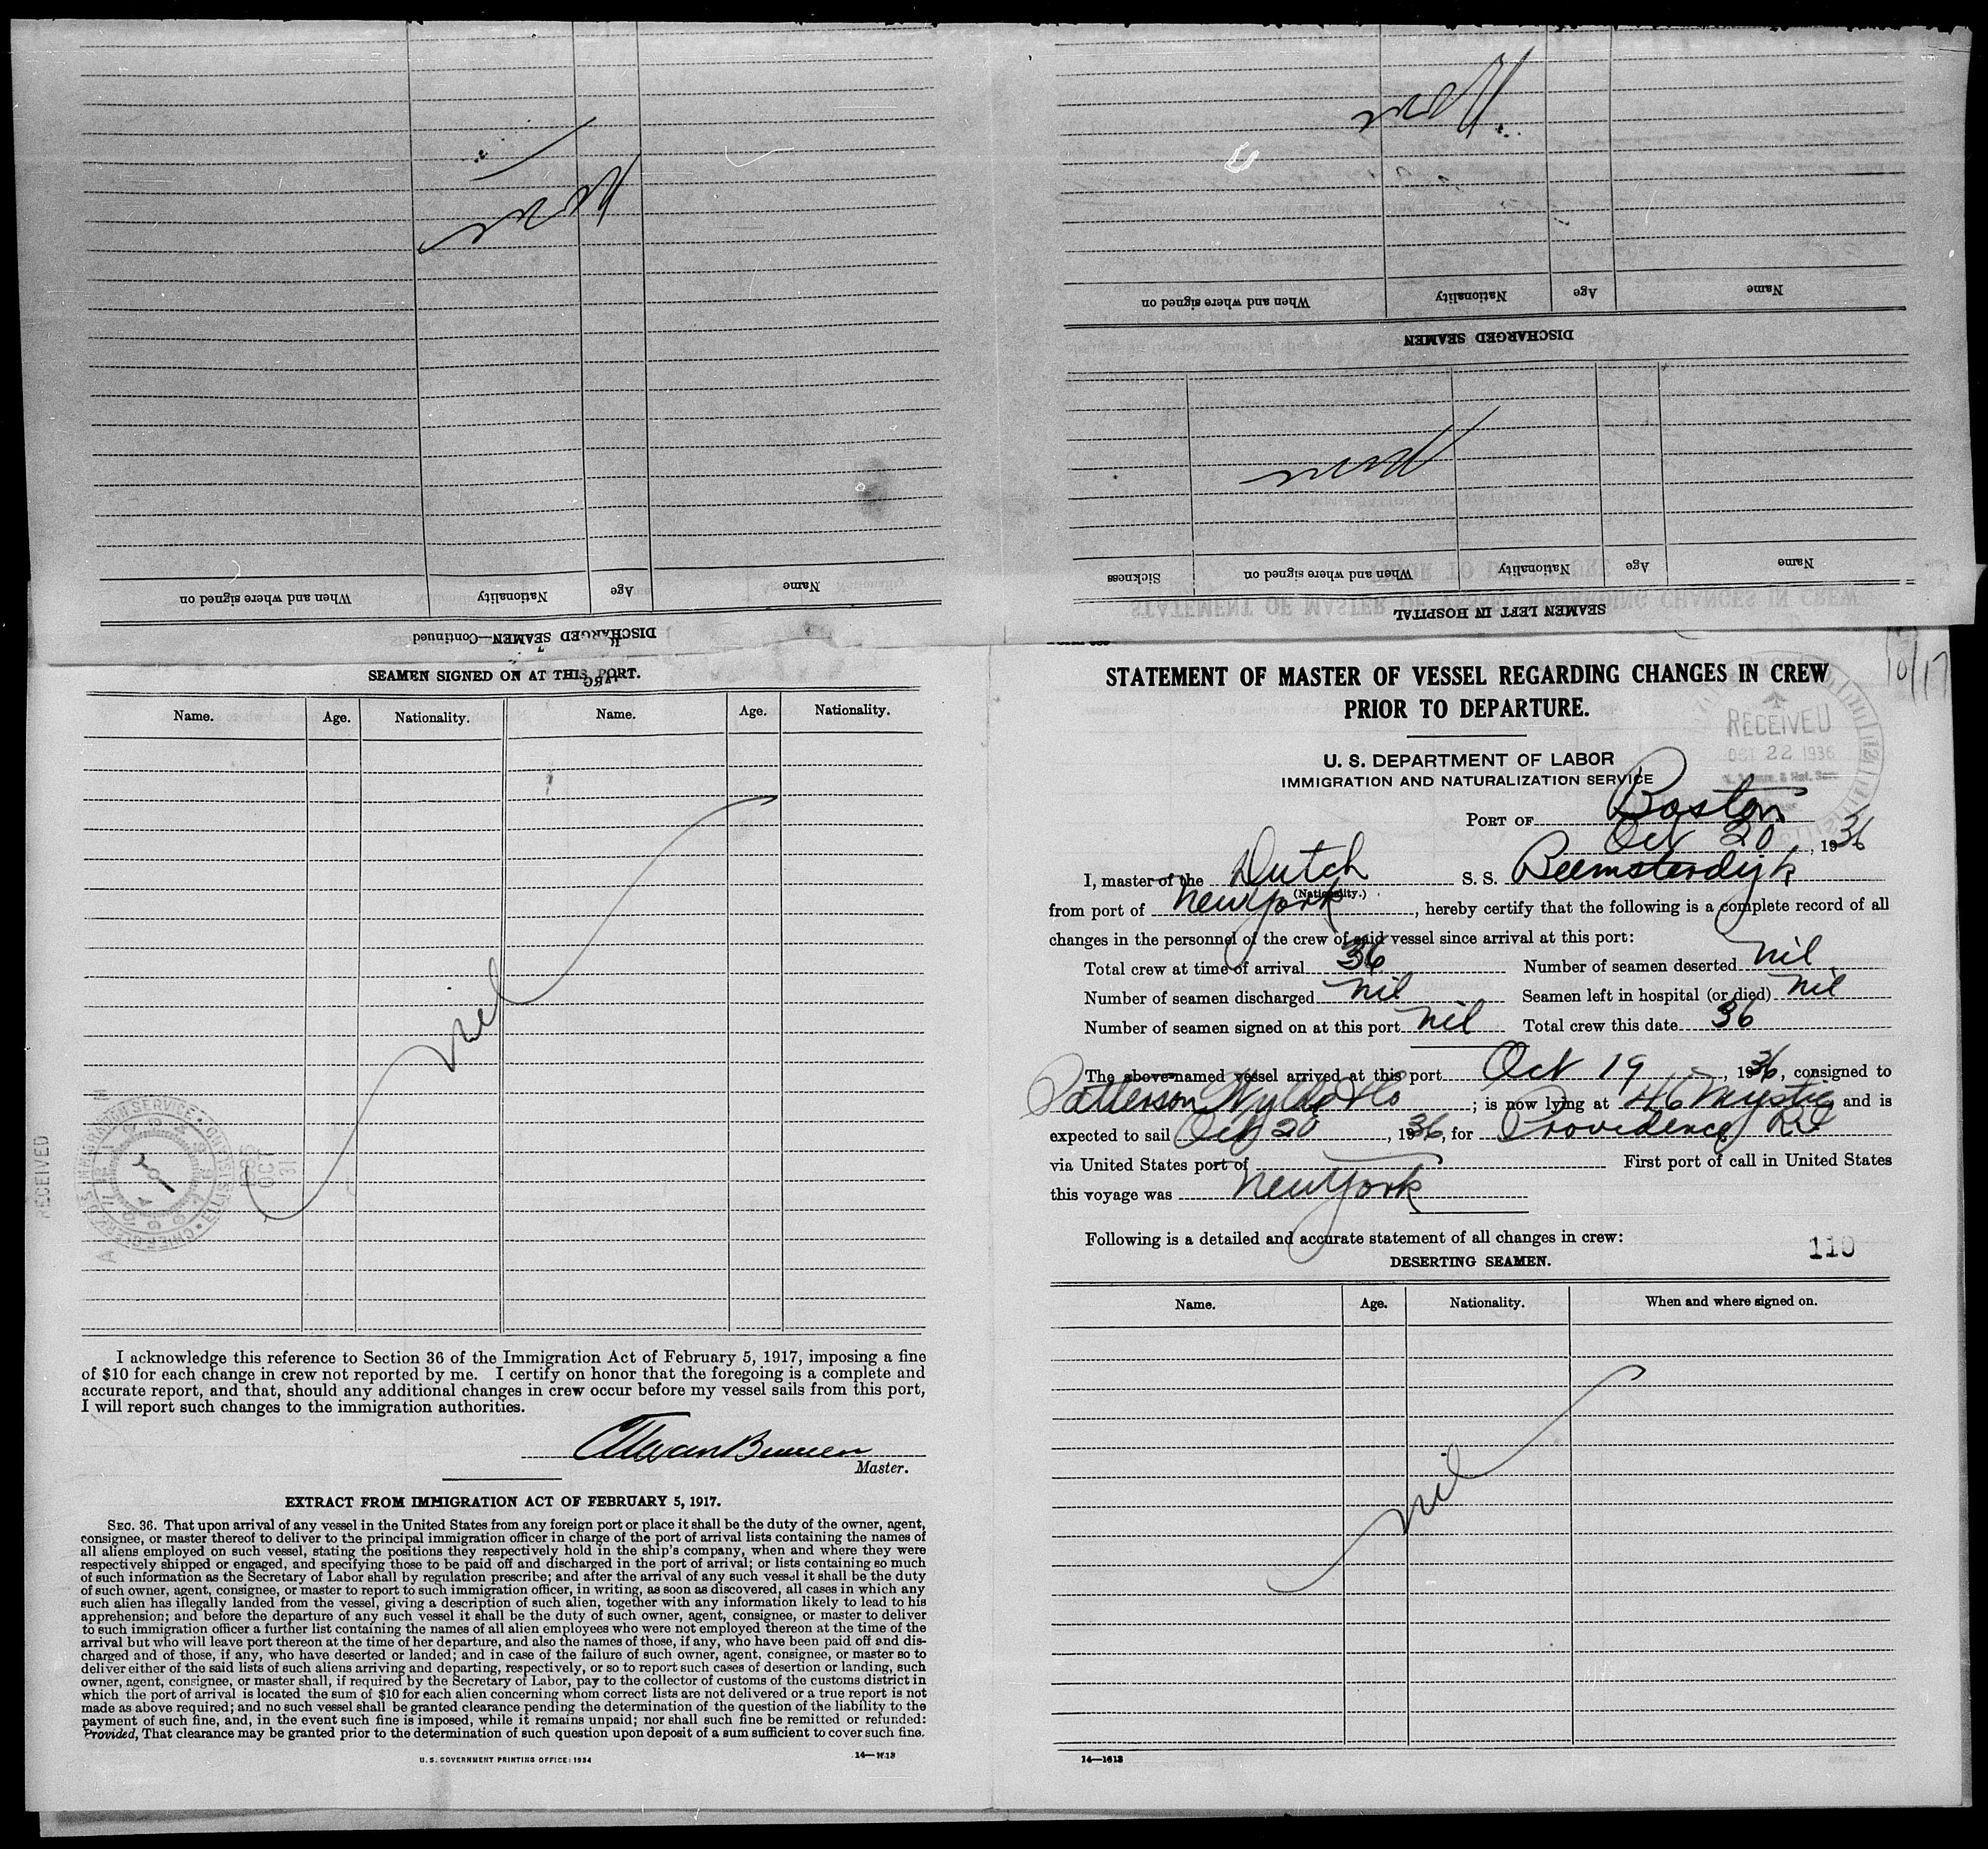 DISCHARGED SEAMEN—Continued
Name
Age
Nationality
When and where signed on
SEAMEN LEFT IN HOSPITAL
Name
Age
Nationality
When and where signed on
Sickness
DISCHARGED SEAMEN
Name
Age
Nationality
When and where signed on
SEAMEN SIGNED ON AT THIS PORT.
Name. Age. Nationality. Name. Age. Nationality.
nil
RECEIVED
I acknowledge this reference to Section 36 of the Immigration Act of February 5, 1917, imposing a fine
of $10 for each change in crew not reported by me. I certify on honor that the foregoing is a complete and
accurate report, and that, should any additional changes in crew occur before my vessel sails from this port,
I will report such changes to the immigration authorities.
Master.
EXTRACT FROM IMMIGRATION ACT OF FEBRUARY 5, 1917.
SEC. 36. That upon arrival of any vessel in the United States from any foreign port or place it shall be the duty of the owner, agent,
consignee, or master thereof to deliver to the principal immigration officer in charge of the port of arrival lists containing the names of
all aliens employed on such vessel, stating the positions they respectively hold in the ship's company, when and where they were
respectively shipped or engaged, and specifying those to be paid off and discharged in the port of arrival; or lists containing so much
of such information as the Secretary of Labor shall by regulation prescribe; and after the arrival of any such vessel it shall be the duty
of such owner, agent, consignee, or master to report to such immigration officer, in writing, as soon as discovered, all cases in which any
such alien has illegally landed from the vessel, giving a description of such alien, together with any information likely to lead to his
apprehension; and before the departure of any such vessel it shall be the duty of such owner, agent, consignee, or master to deliver
to such immigration officer a further list containing the names of all alien employees who were not employed thereon at the time of the
arrival but who will leave port thereon at the time of her departure, and also the names of those, if any, who have been paid off and dis-
charged and of those, if any, who have deserted or landed; and in case of the failure of such owner, agent, consignee, or master so to
deliver either of the said lists of such aliens arriving and departing, respectively, or so to report such cases of desertion or landing, such
owner, agent, consignee, or master shall, if required by the Secretary of Labor, pay to the collector of customs of the customs district in
which the port of arrival is located the sum of $10 for each alien concerning whom correct lists are not delivered or a true report is not
made as above required; and no such vessel shall be granted clearance pending the determination of the question of the liability to the
payment of such fine, and, in the event such fine is imposed, while it remains unpaid; nor shall such fine be remitted or refunded:
Provided, That clearance may be granted prior to the determination of such question upon deposit of a sum sufficient to cover such fine.
U. S. GOVERNMENT PRINTING OFFICE: 1934
14—1613
10/17
STATEMENT OF MASTER OF VESSEL REGARDING CHANGES IN CREW
PRIOR TO DEPARTURE.
RECEIVED
OCT 22 1936
U. S. DEPARTMENT OF LABOR
IMMIGRATION AND NATURALIZATION SERVICE
PORT OF Boston
Oct 20, 1936
I, master of the Dutch S. S. Beemsterdijk
(Nationality.)
from port of New York, hereby certify that the following is a complete record of all
changes in the personnel of the crew of said vessel since arrival at this port:
Total crew at time of arrival 36 Number of seamen deserted nil
Number of seamen discharged nil Seamen left in hospital (or died) nil
Number of seamen signed on at this port nil Total crew this date 36
The above-named vessel arrived at this port Oct 19, 1936, consigned to
Patterson Wylde & Co; is now lying at 46 Mystic and is
expected to sail Oct 20, 1936, for Providence RI
via United States port of First port of call in United States
this voyage was New York
Following is a detailed and accurate statement of all changes in crew:
110
DESERTING SEAMEN.
Name. Age. Nationality. When and where signed on.
nil
14—1613